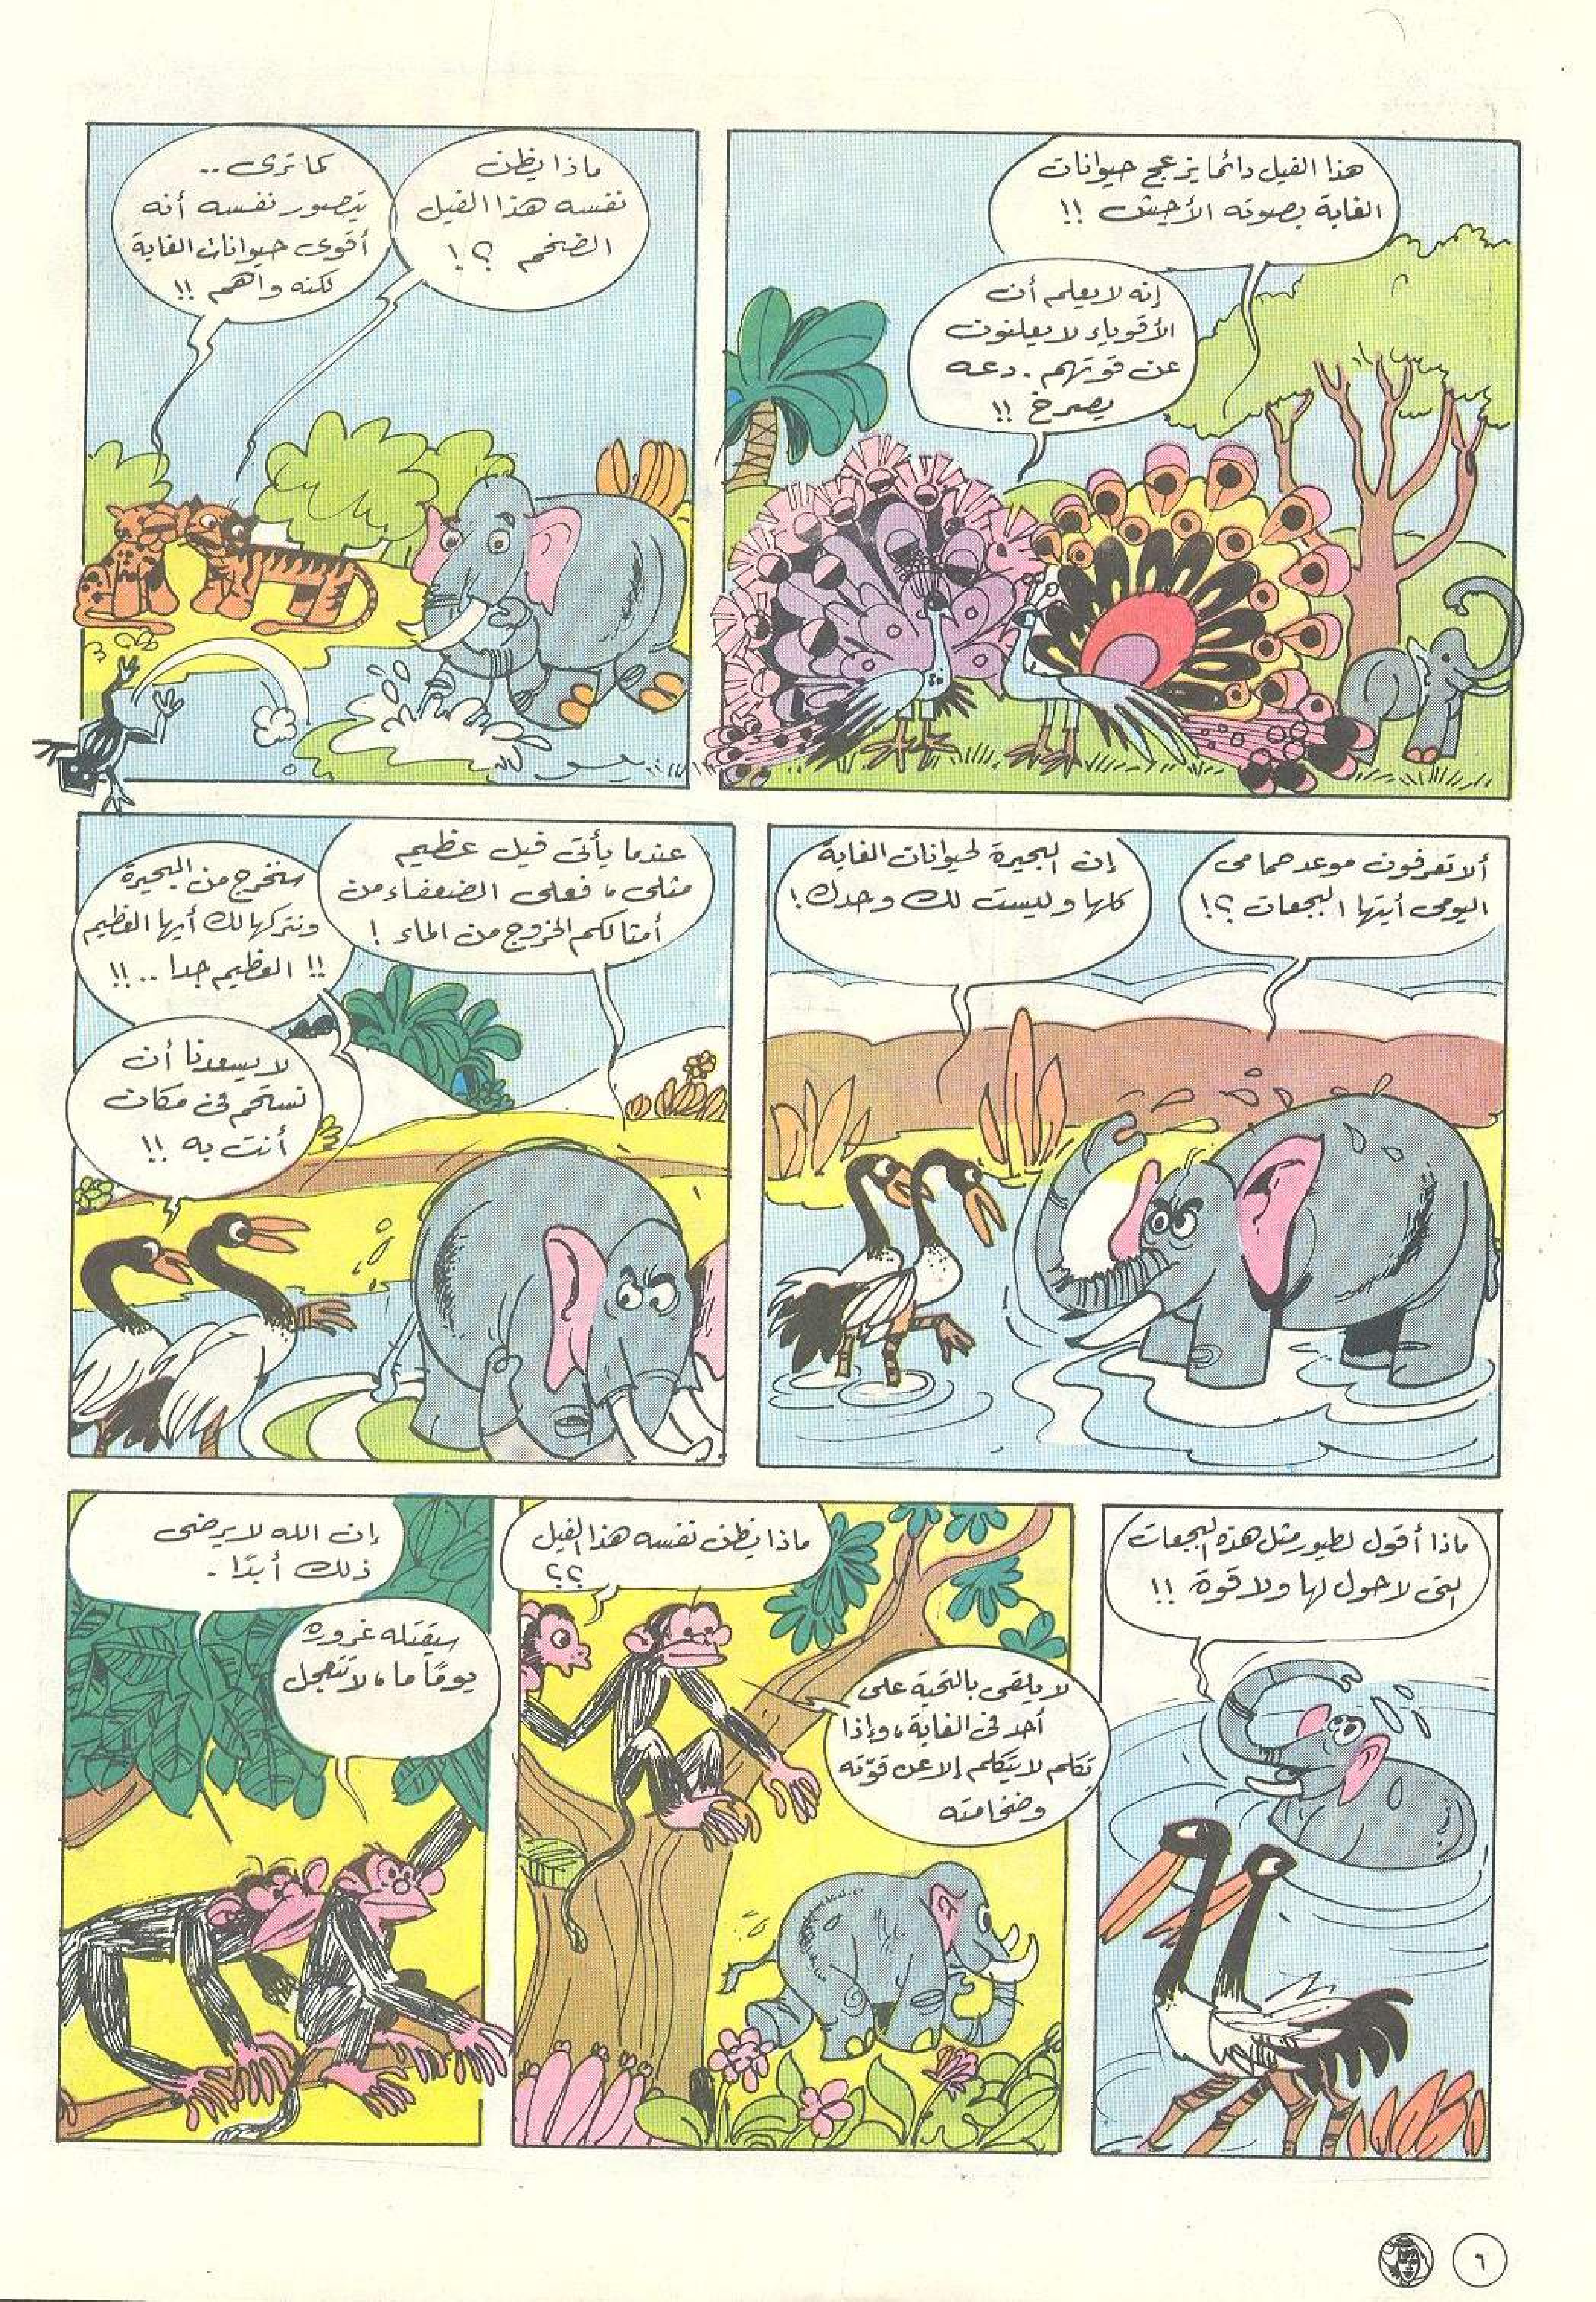 هذا الفيل دائما يزعج حيوانات
الغابة بصوته الأجش !!
إنه لا يعلم أن
الأقوياء لا يعلنون
عن قوتهم . دعه
يصرخ !!
ماذا يظن
نفسه هذا الفيل
الضخم ؟!
كما ترى ..
يتصور نفسه أنه
أقوى حيوانات الغابة
لكنه واهم !!
ألا تعرفون موعد حمامى
اليومى أيتها البجعات ؟!
إن البحيرة لحيوانات الغابة
كلها وليست لك وحدك !
عندما يأتى فيل عظيم
مثلى ، فعلى الضعفاء من
أمثالكم الخروج من الماء !
سنخرج من البحيرة
ونتركها لك أيها العظيم
!! العظيم جدا .. !!
لا يسعدنا أن
نستحم فى مكان
أنت به !!
ماذا أقول لطيور مثل هذه البجعات
التى لا حول لها ولا قوة !!
ماذا يظن نفسه هذا الفيل
؟؟
لا يلقى بالتحية على
أحد فى الغابة ، وإذا
تكلم لا يتكلم إلا عن قوّته
وضخامته
إن الله لا يرضى
ذلك أبدًا .
سيقتله غروره
يومًا ما ، لا تتعجل
٦